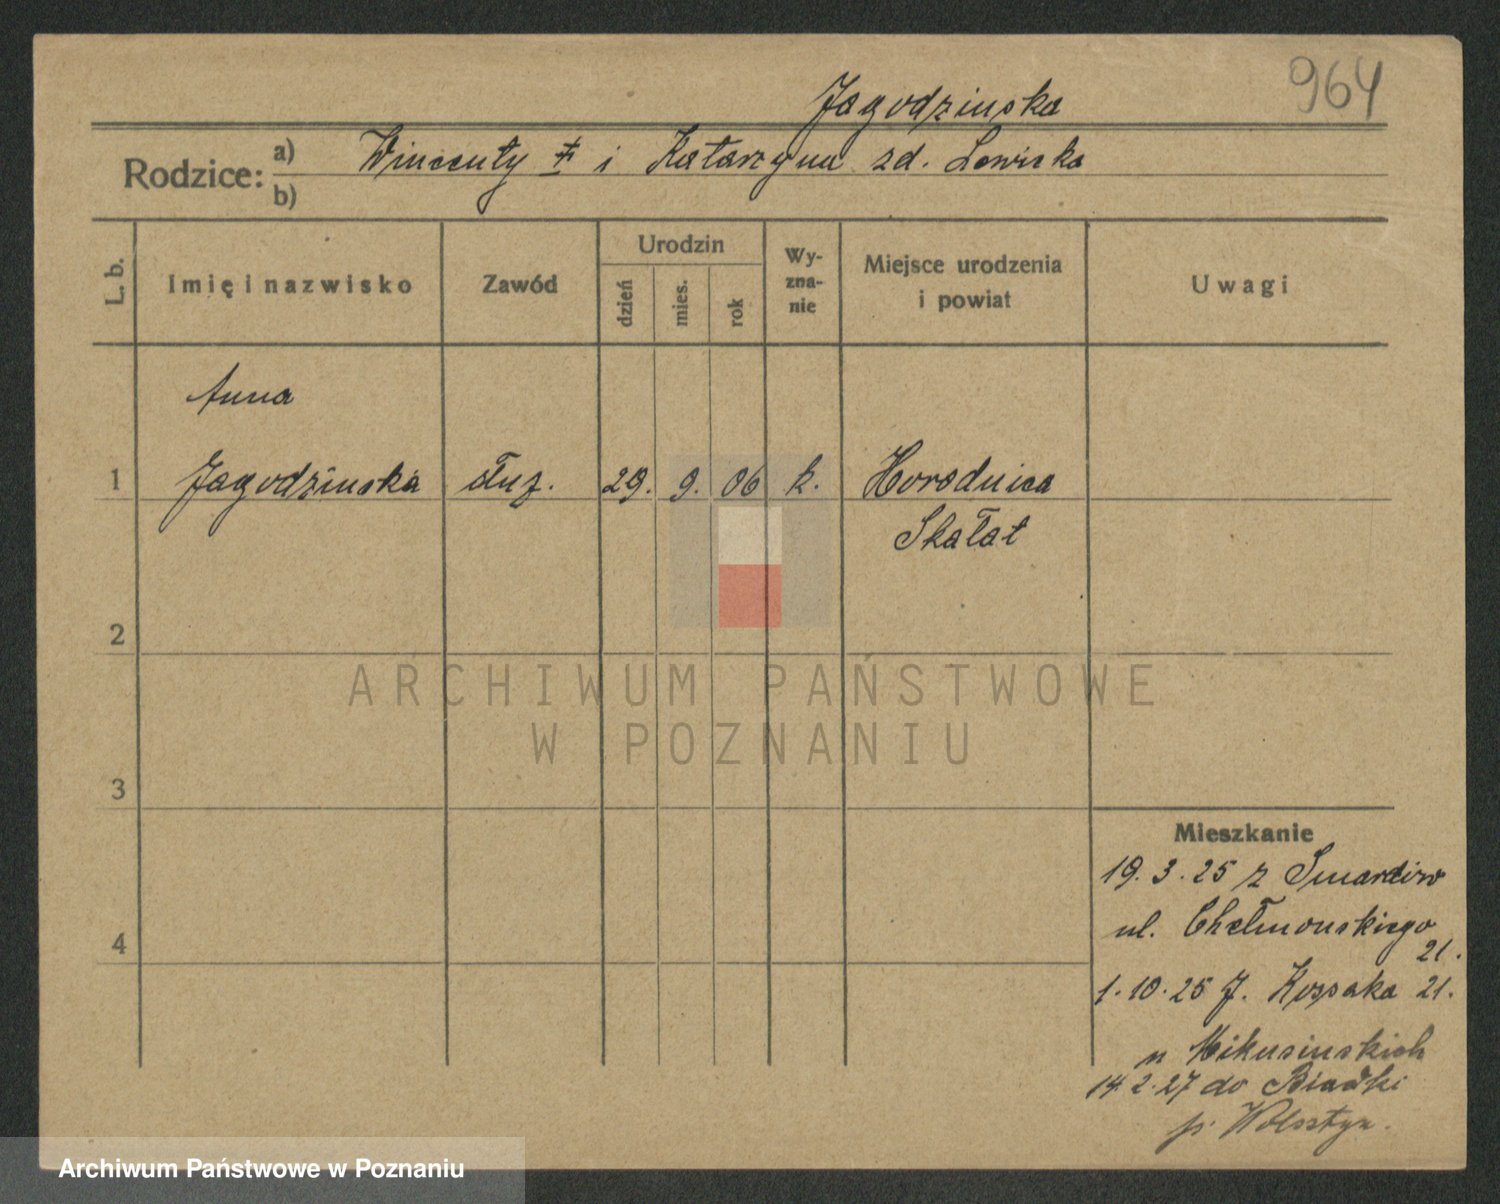 964
Jagodzinska
Rodzice: a) b)
Wincenty ‡ i Katarzyna zd. Lewicka
L. b.
Imię i nazwisko
Zawód
Urodzin
dzień
mies.
rok
Wy-
zna-
nie
Miejsce urodzenia
i powiat
Uwagi
Anna
1 Jagodzinska służ. 29. 9. 06 k. Horodnica
Skałat
2
ARCHIWUM PAŃSTWOWE
W POZNANIU
3
Mieszkanie
19. 3. 25 z
ul. Chełmonskiego
21.
4
1. 10. 25 J. Kossaka 21.
u Mikusinskich
14. 2. 27 do
p. Wolsztyn.
Archiwum Państwowe w Poznaniu